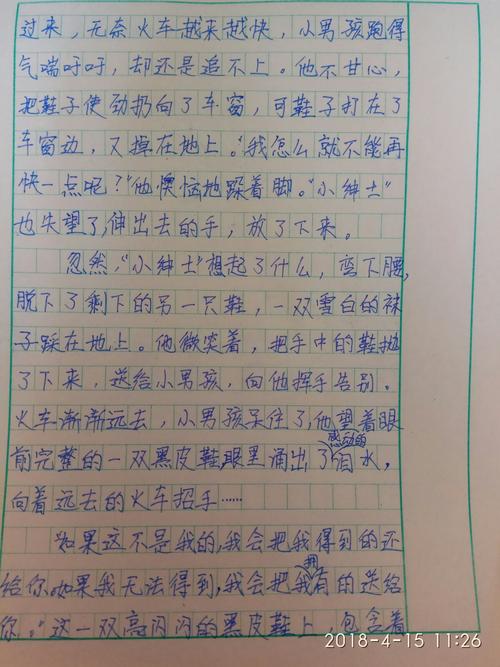 过来，无奈火车越来越快，小男孩跑得
气喘吁吁，却还是追不上。他不甘心，
把鞋子使劲扔向了车窗，可鞋子打在了
车窗边，又掉在地上。"我怎么就不能再
快一点呢？"他懊恼地跺着脚。"小绅士"
也失望了,伸出去的手，放了下来。
忽然，"小绅士"想起了什么，弯下腰,
脱下了剩下的另一只鞋，一双雪白的袜
子踩在地上。他微笑着，把手中的鞋抛
了下来，送给小男孩，向他挥手告别。
火车渐渐远去，小男孩呆住了,他望着眼
前完整的一双黑皮鞋眼里涌出了感动的泪水，
向着远去的火车招手……
"如果这不是我的,我会把我得到的还
给你.如果我无法得到,我会把我拥有的送给
你。"这一双亮闪闪的黑皮鞋上，包含着
2018-4-15 11:26